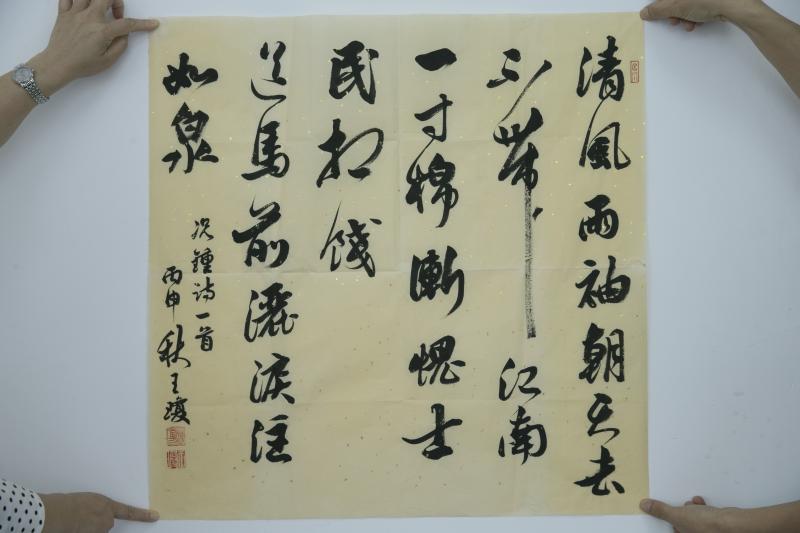 清風兩袖朝天去
不帶江南
一寸棉漸愧士
民相餞
送馬前灑淚注
如泉
况鍾诗一首
丙申秋王瓊